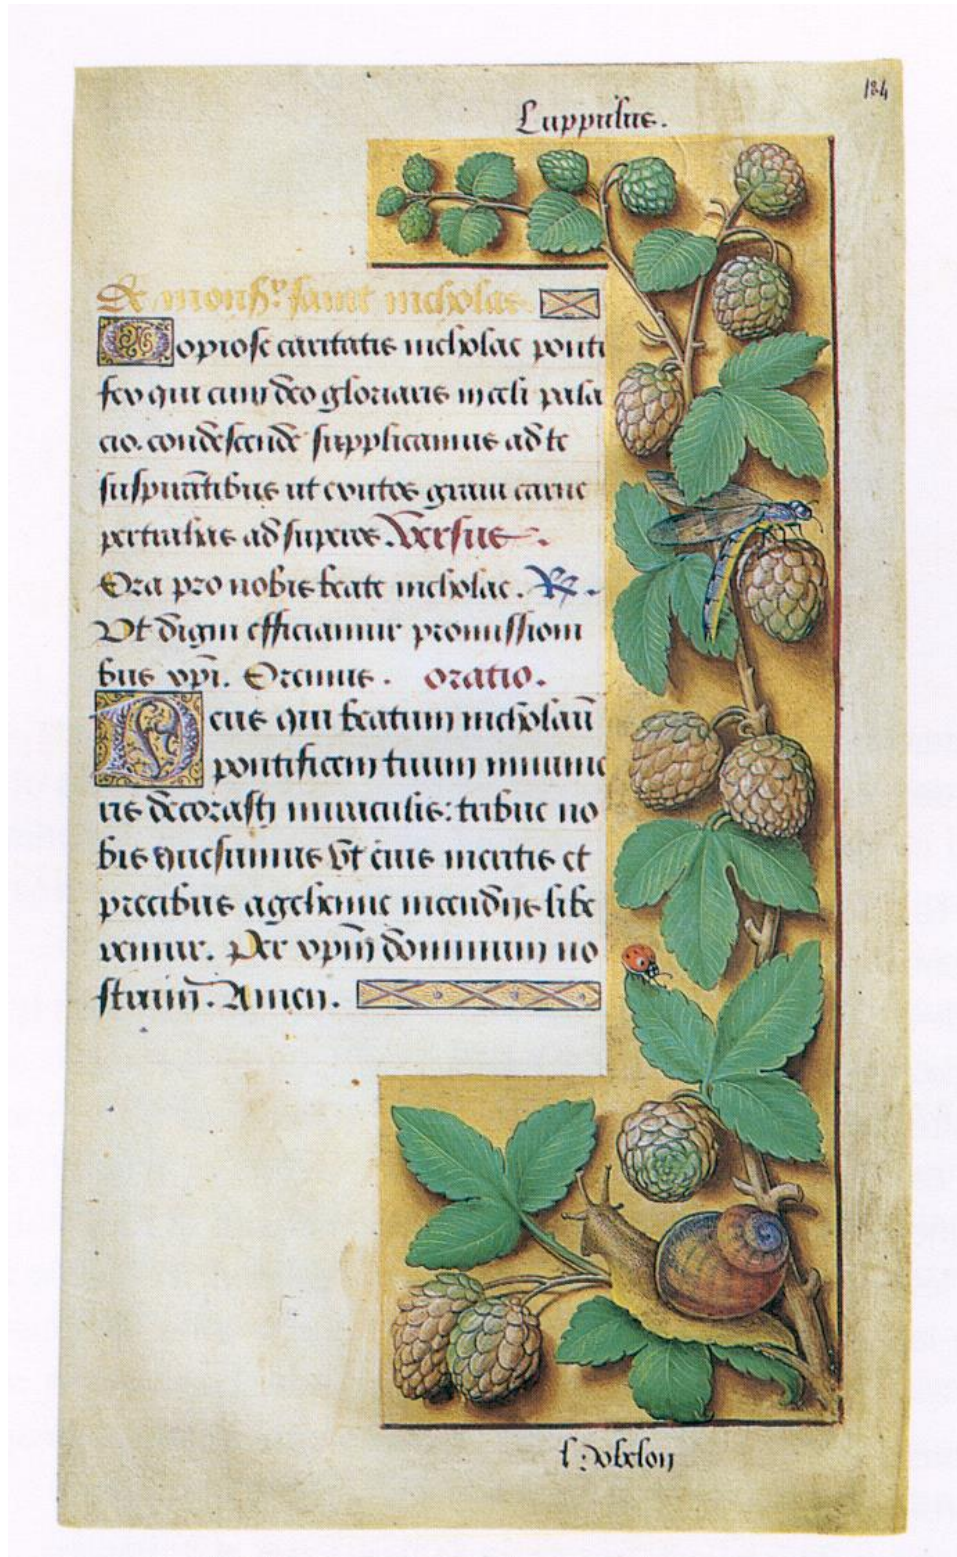 184
Luppulus.
De monsr. saint nicholas
Copiose caritatis nicholae ponti
fex qui cum deo gloriaris in celi pala
cio. condescende supplicamus ad te
suspirātibus ut exutos graui carne
pertrahas ad superos. Versus.
Ora pro nobis beate nicholae. R.
Vt digni efficiamur promissioni
bus xpi. Oremus. oratio.
Deus qui beatum nicholaū
pontificem tuum innume
ris decorasti miraculis: tribue no
bis quesumus vt eius meritis et
precibus a gehenne incendijs libe
remur. Per xpm̄ dominum no
strum. Amen.